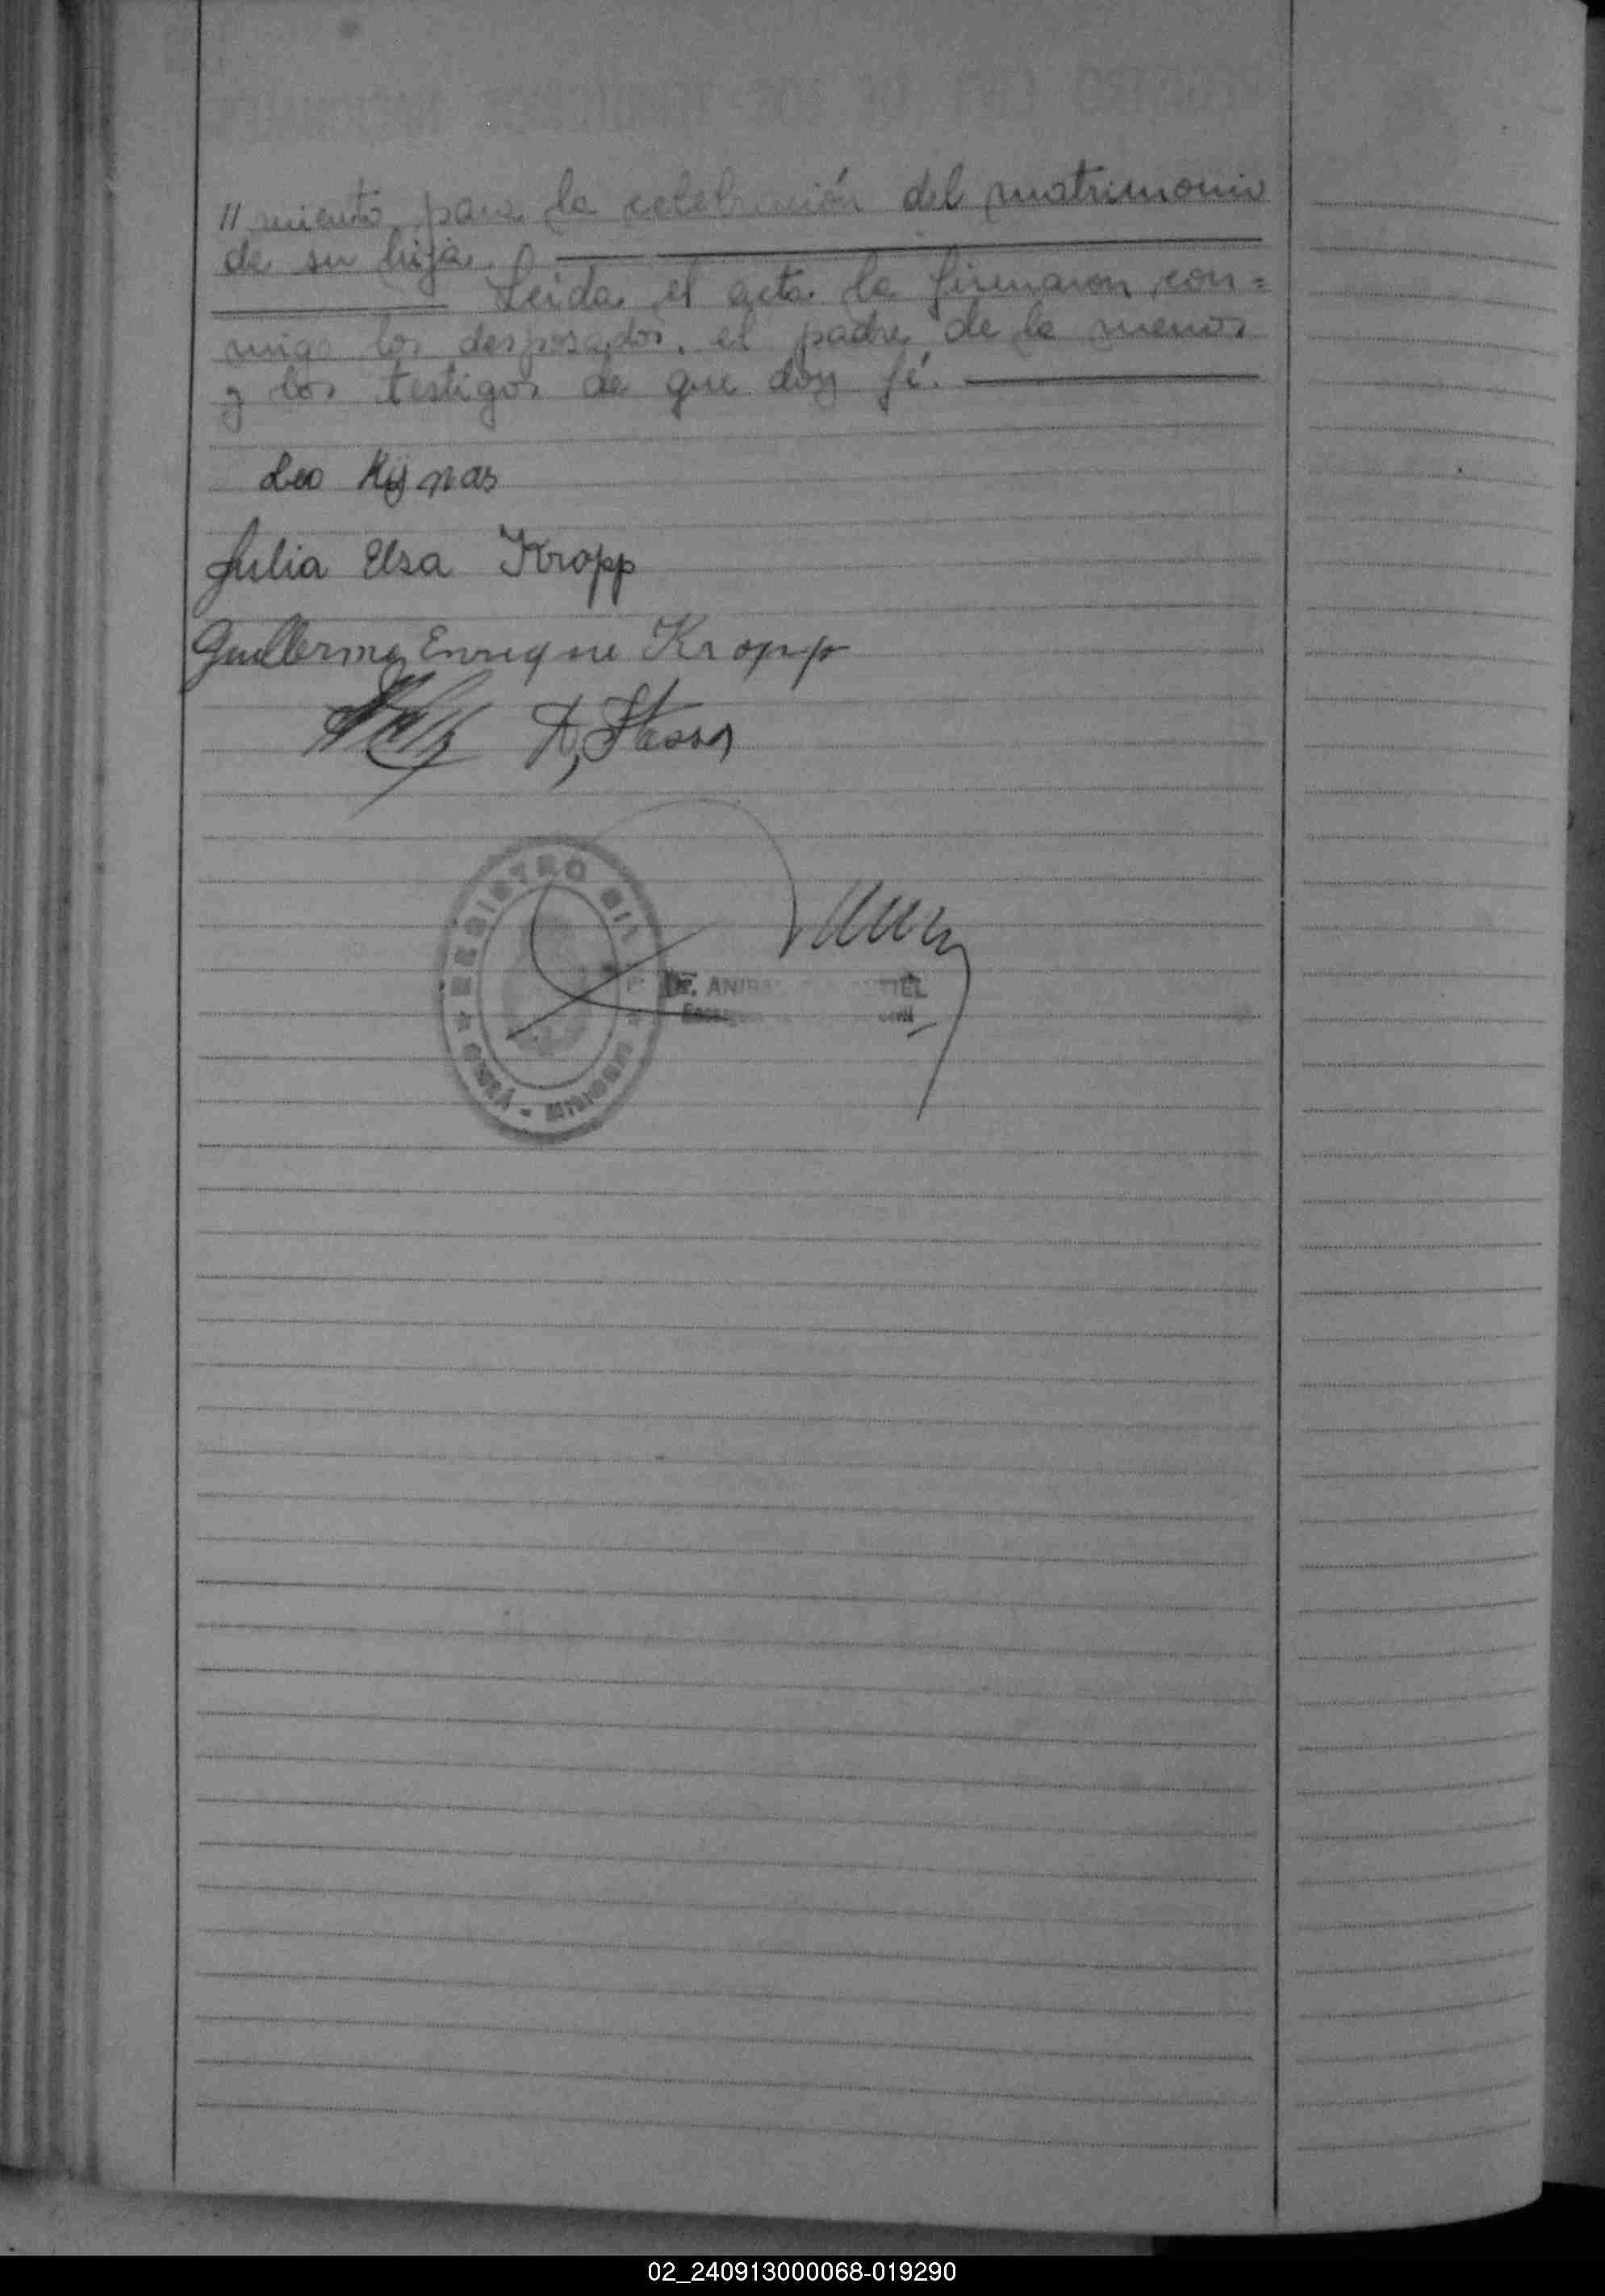 "miento para la celebración del matrimonio
de su hija.
Leida el acta la firmaron con=
migo los desposados, el padre de la menor
y los testigos de que doy fé.
Leo Kijnas
Julia Elsa Kropp
Guillermo Enrique Kropp
REGISTRO CIVIL
MISIONES
Dr. ANIBAL
02_240913000068-019290